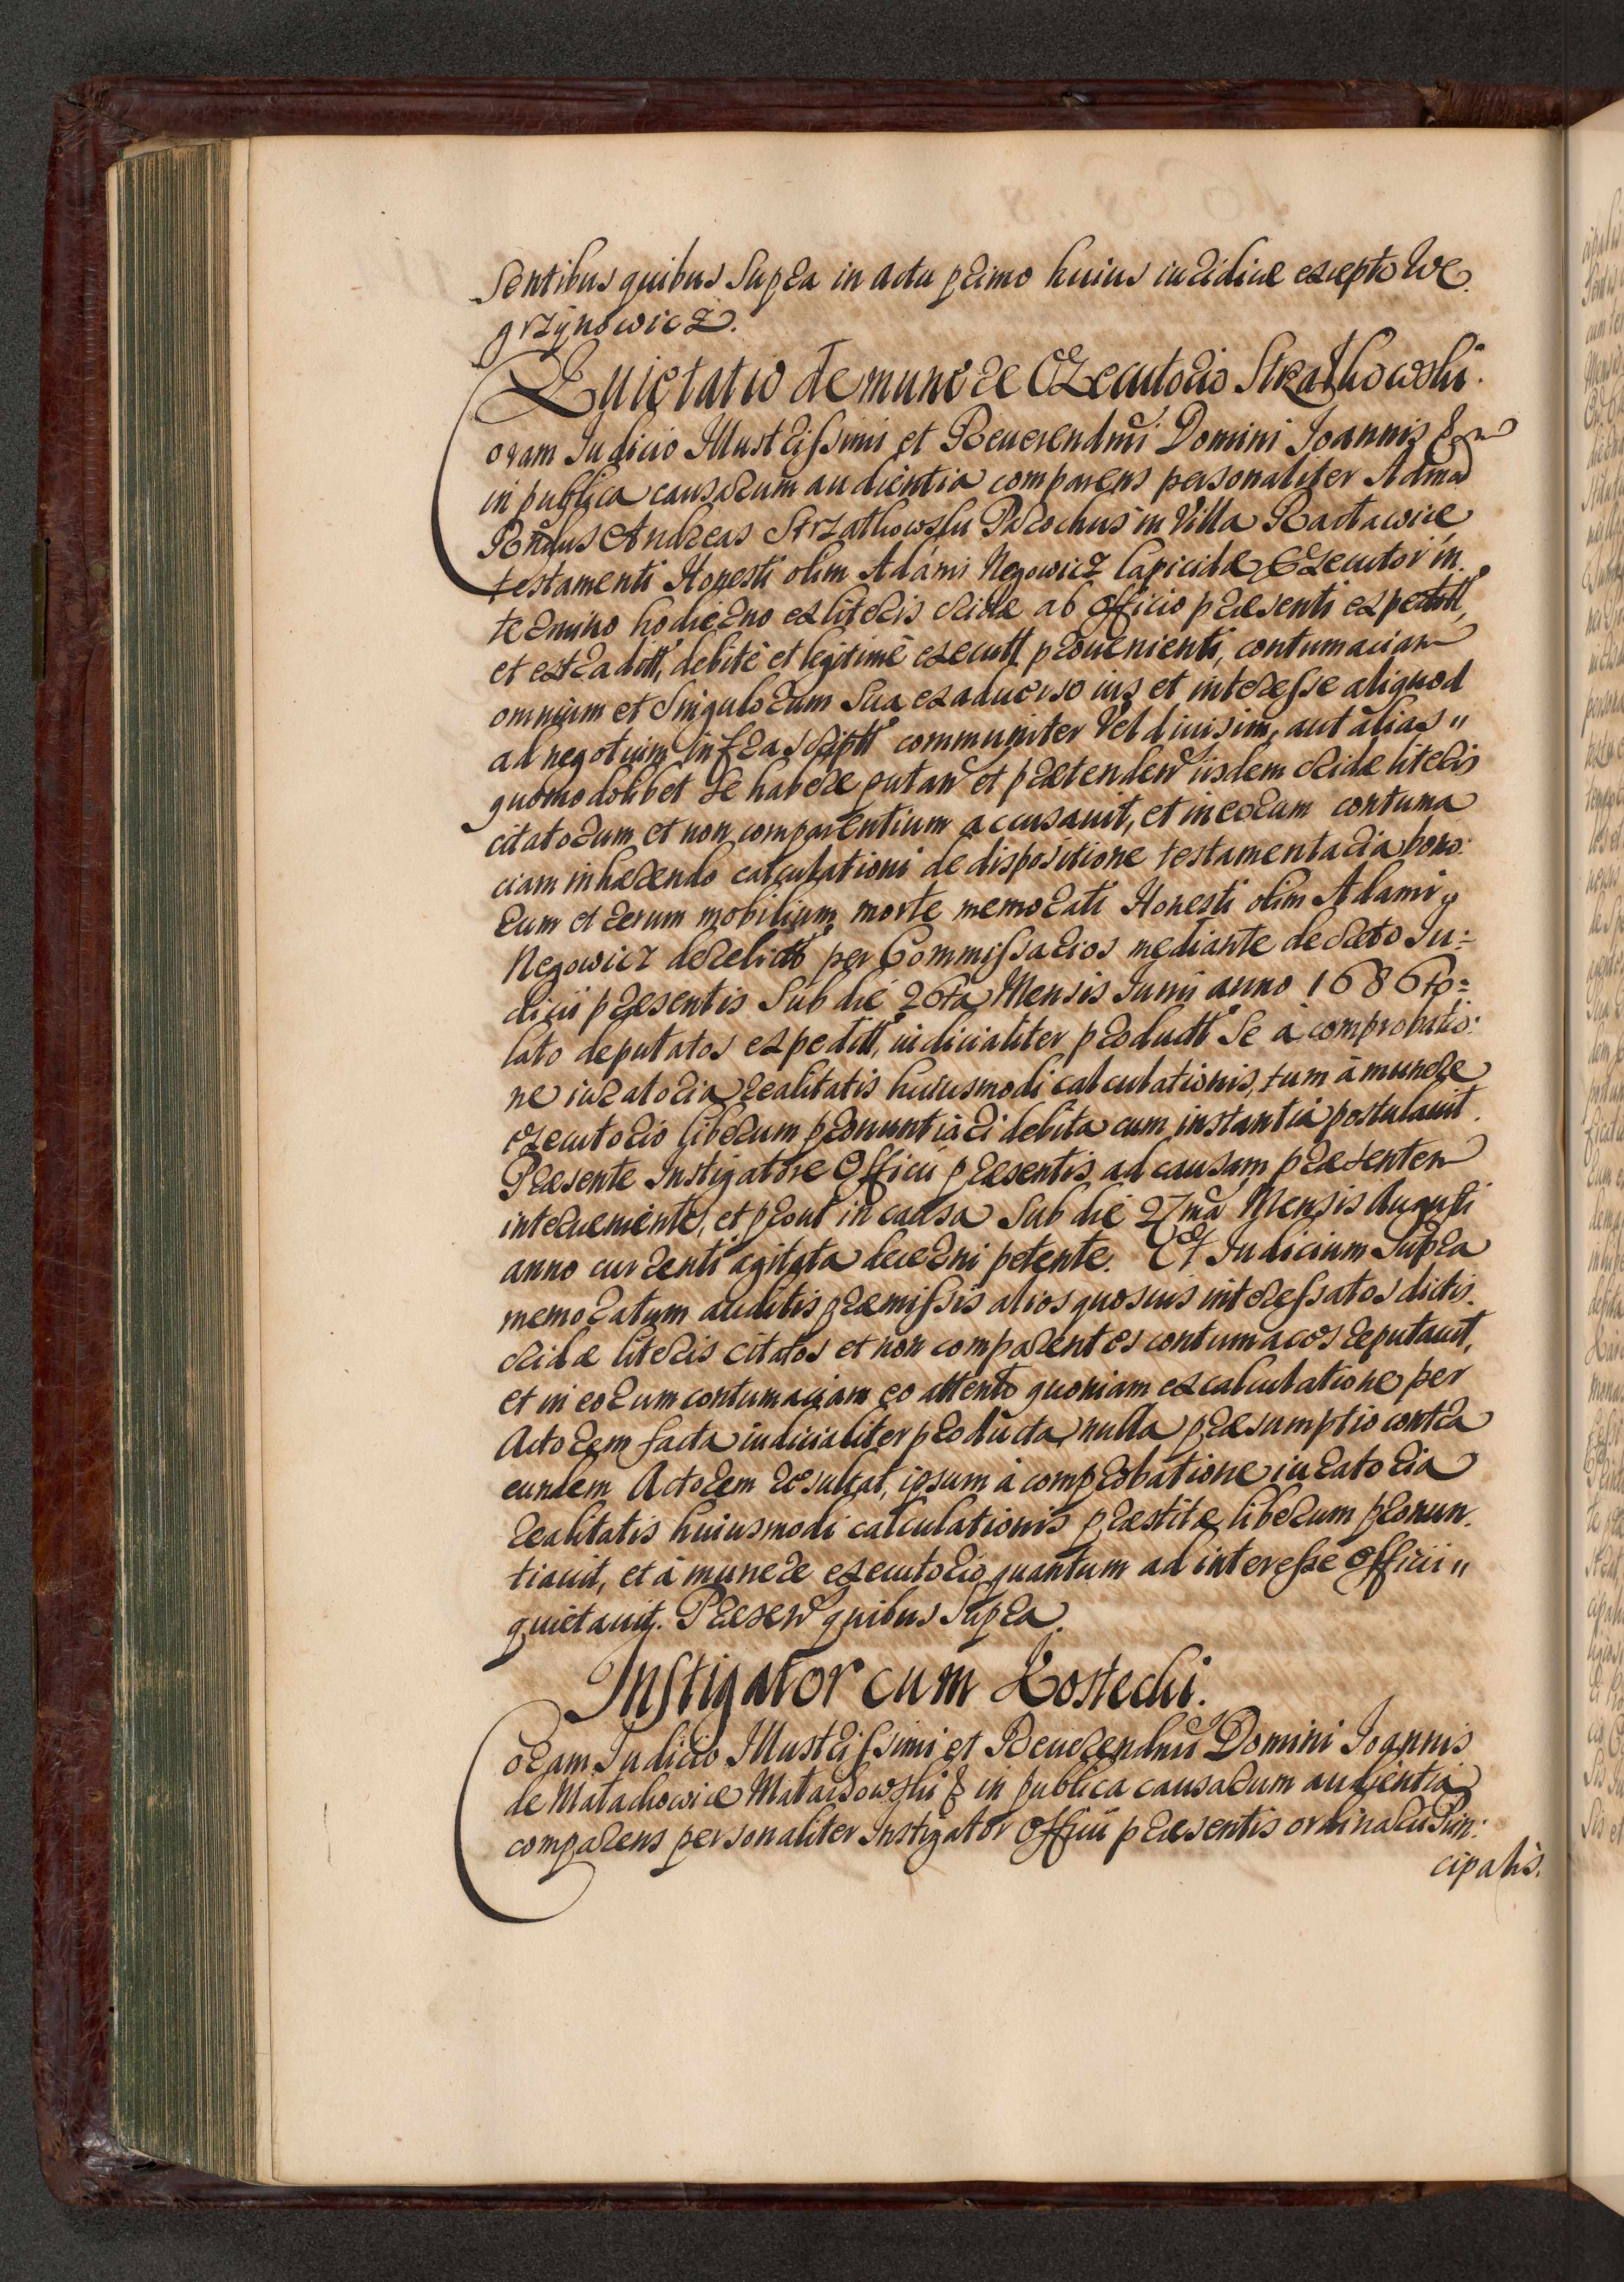 sentibus quibus supra in actu primo huius iuridicae excepto We
grzÿnowicz.
Quietatio de munere Executorio Strzałkowski.
Coram Judicio Illustrissimi et Reuerendmi Domini Joannis &
in publica causarum audientia comparens personaliter Admod
Rndus Andreas Strzałkowski Parochus in Villa Racławice
testamenti Honesti olim Adami Negowicz lapicidae Executor in
termino hodierno ex literis cridae ab Officio praesenti expeditt,
et extraditt, debitè et legitimè executt prouenienti, contumaciam
omnium et singulorum sua ex aduerso ius et interesse aliquod
ad negotium infrascriptt communiter vel diuisim, aut alias"
quomodolibet se habere putan et praetenden iisdem cridae literis
citatorum et non comparentium accusauit, et in eorum contuma
ciam inhaerendo calculationi de dispositione testamentaria bono:
rum et rerum mobilium, morte memorati Honesti olim Adami
Negowicz derelictt per Commissarios mediante decreto Ju:
dicii praesentis sub die 26ta Mensis Junii anno 1686to
lato deputatos expeditt, iudicialiter productt se à comprobatio:
ne iuratoria realitatis huiusmodi calculationis, tum à munere
executorio liberum pronuntiari debita cum instantia postulauit.
Praesente Instigatore Officii praesentis ad causam praesentem
interueniente, et prout in causa sub die 27ma Mensis Augusti
anno currenti agitata decerni petente. Et Judicium supra
memoratum auditis praemissis alios quosuis interessatos dictis
cridae literis citatos et non comparentes contumaces reputauit,
et in eorum contumaciam eo attento quoniam ex calculatione per
Actorem facta iudicialiter producta, nulla praesumptio contra
eundem Actorem resultat, ipsum à comprobatione iuratoria
realitatis huiusmodi calculationis praestitae liberum pronun
tiauit, et à munere executorio quantum ad interesse Officii"
quietauit. Praesen quibus supra.
Instigator cum Kostecki.
Coram Judicio Illustrissimi et Reuerendmi Domini Joannis
de Małachowice Małachowski & in publica causarum audientia
comparens personaliter Instigator Officii praesentis ordinarius Prin:
cipalis.